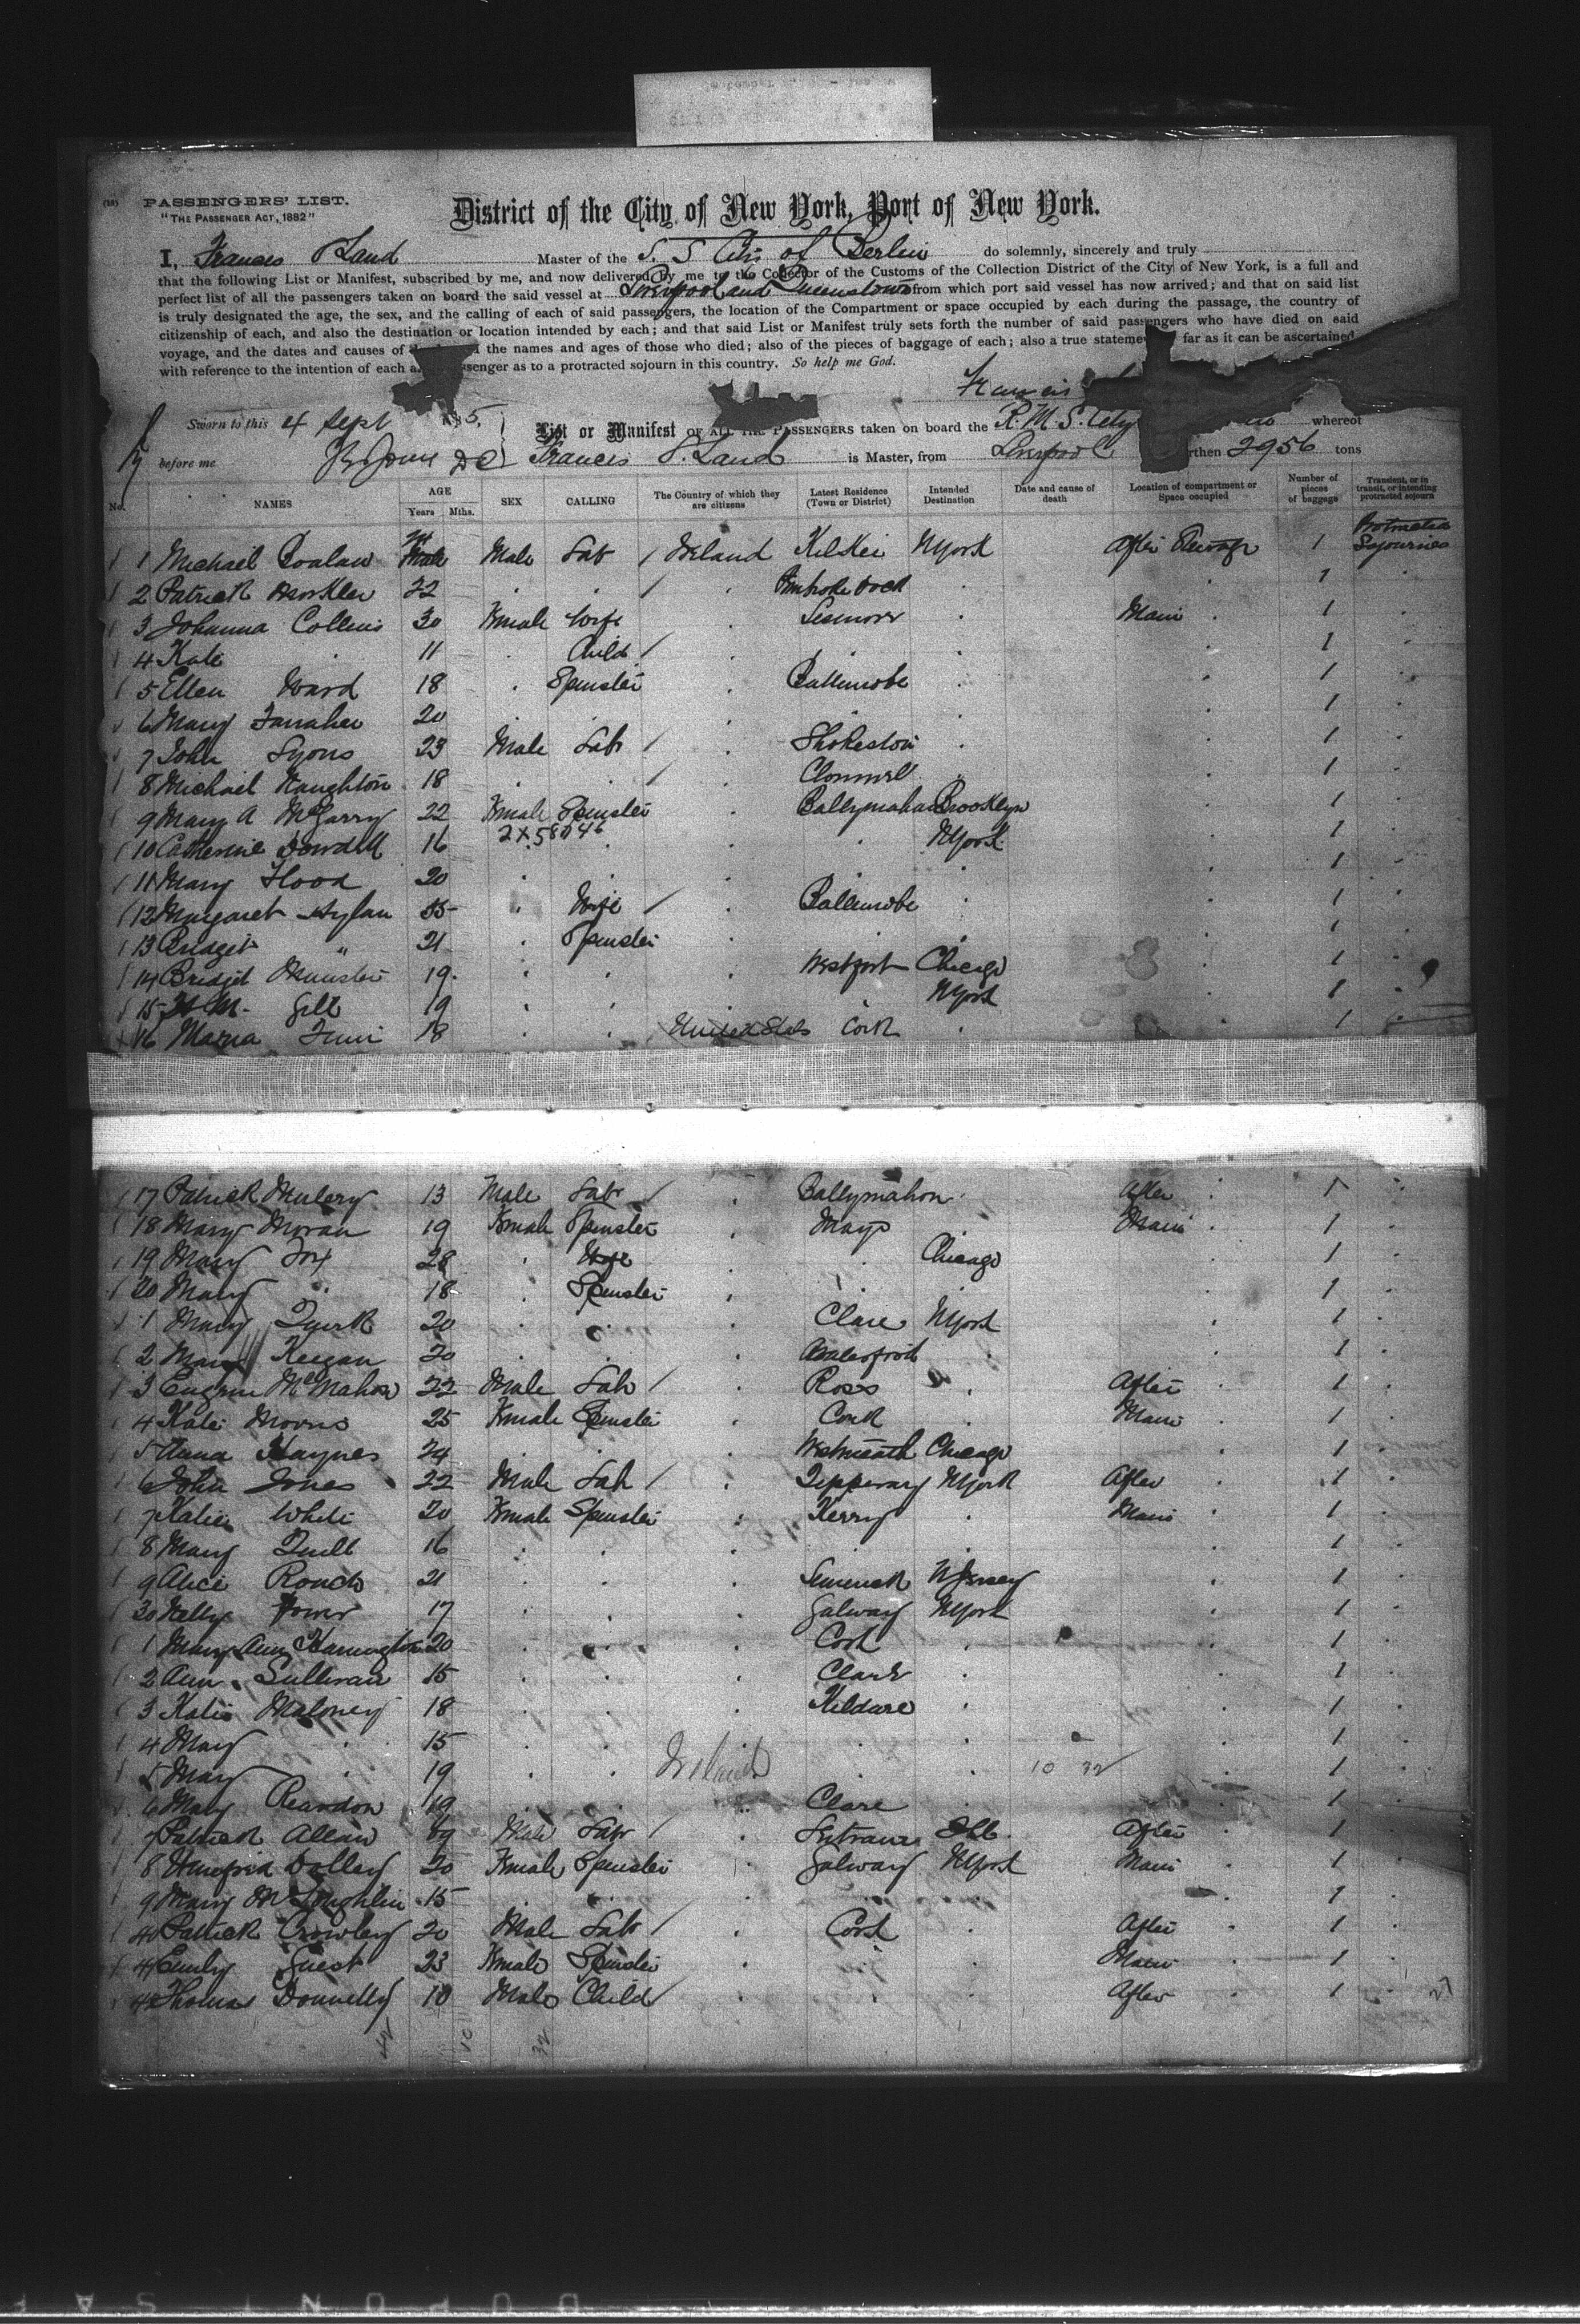 PASSENGERS' LIST.
"THE PASSENGER ACT, 1882"
District of the City of New York, Port of New York.
I, Frances S Land Master of the S. S City of Berlin do solemnly, sincerely and truly
that the following List or Manifest, subscribed by me, and now delivered by me to the Collector of the Customs of the Collection District of the City of New York, is a full and
perfect list of all the passengers taken on board the said vessel at Liverpool and Queenstown from which port said vessel has now arrived; and that on said list
is truly designated the age, the sex, and the calling of each of said passengers, the location of the Compartment or space occupied by each during the passage, the country of
citizenship of each, and also the destination or location intended by each; and that said List or Manifest truly sets forth the number of said passengers who have died on said
voyage, and the dates and causes of the names and ages of those who died; also of the pieces of baggage of each; also a true far as it can be ascertained
with reference to the intention of each as to a protracted sojourn in this country. So help me God.
Francis
Sworn to this 4 Sept
List or Manifest OF ALL THE PASSENGERS taken on board the R.M.S. City whereof
before me Frances S. Land is Master, from Liverpool burthen 2956 tons
No. NAMES AGE Years Mths. SEX CALLING The Country of which they are citizens Latest Residence (Town or District) Intended Destination Date and cause of death Location of compartment or Space occupied Number of pieces of baggage Transient, or in transit, or intending protracted sojourn
1 Michael Male Lab Ireland NYork After 1 Protracted Sojourn
2 Patrick 22 Pembroke Dock 1
3 Johanna Collins 30 Female Wife Main 1
4 Kate 11 Child 1
5 Ellen Ward 18 Spinster Ballinrobe 1
6 Mary 20 1
7 John Lyons 23 Male Lab 1
8 Michael Naughton 18 Clonmel 1
9 Mary A McGarry 22 Female Spinster Ballymahon Brooklyn 1
2X58046
10 Catherine Dowdell 16 NYork 1
11 Mary Flood 20 1
12 Margaret Hylan Wife Ballinrobe 1
13 Bridget " 21 Spinster 1
14 Bridget 19 Westport Chicago 1
15 Gill 19 NYork 1
16 Maria 18 United Stats Cork 1
17 Patrick 13 Male Lab Ballymahon After 1
18 Mary Moran 19 Female Spinster Mayo Main 1
19 Mary Fox 28 Wife Chicago 1
20 Mary 18 Spinster 1
1 Mary Quirk 20 Clare NYork 1
2 Mary Keegan 20 1
3 Eugene McMahon 22 Male Lab Ross After 1
4 Kate Morris 25 Female Spinster Cork Main 1
5 Anna Haynes 24 Westmeath Chicago 1
6 John Jones 22 Male Lab Tipperary NYork After 1
7 Katie White 20 Female Spinster Kerry Main 1
8 Mary Quill 16 1
9 Alice Roach 21 Limerick NJersey 1
30 Nelly Power 17 Galway NYork 1
1 Mary Ann Harrington 20 Cork 1
2 Ann Sullivan 15 Clare 1
3 Katie Maloney 18 Kildare 1
4 Mary 15 1
5 Mary 19 Ireland 10 32 1
6 Mary Reardon 19 Clare 1
7 Patrick Allan Male Lab After 1
8 Dolley 20 Female Spinster Galway NYork Main 1
9 Mary McLoughlin 15 1
40 Patrick Crowley 20 Male Lab Cork After 1
41 Emily Guest 23 Female Spinster Main 1
42 Thomas Donnelly 10 Male Child After 1
42 10 32